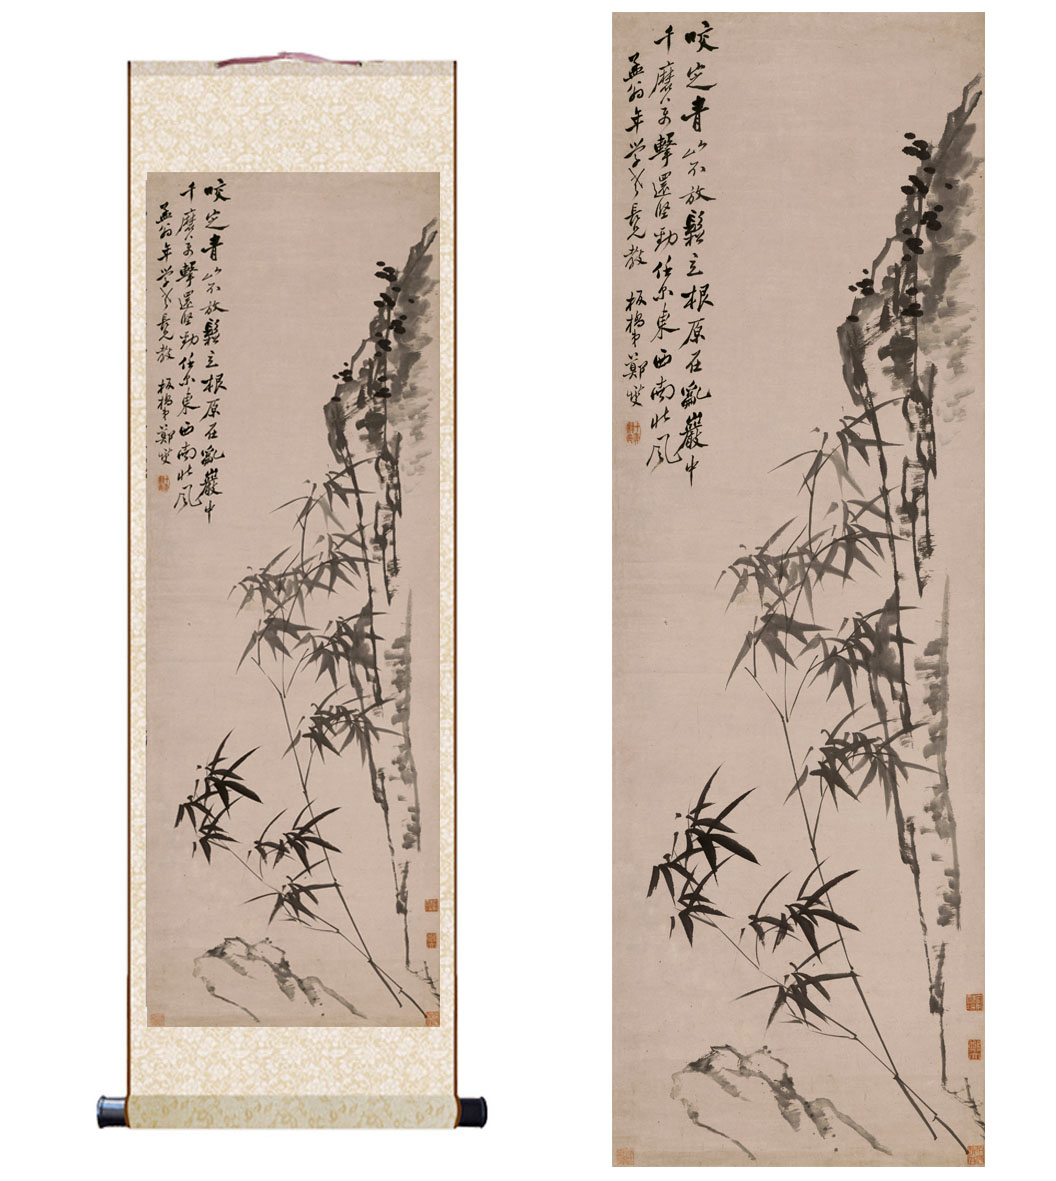 咬定青山不放鬆立根原在亂巖中
千磨万擊還坚勁任尔東西南北風
孟翁年学老長兄教 板橋弟鄭燮
咬定青山不放鬆立根原在亂巖中
千磨万擊還坚勁任尔東西南北風
孟翁年学老長兄教 板橋弟鄭燮